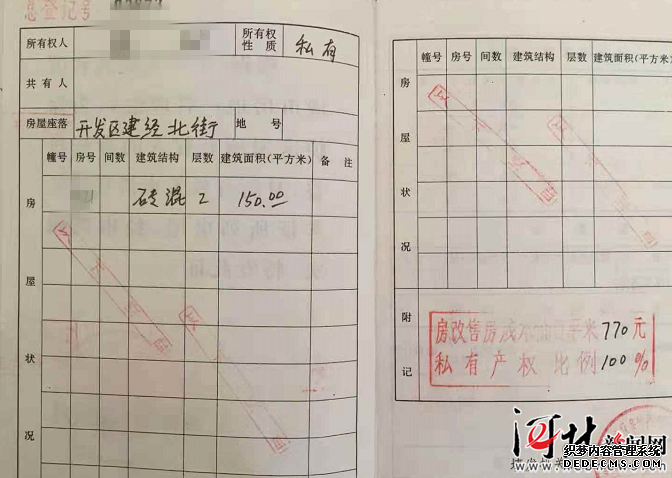 息登记号
所有权人
所有权性质 私有
共有人
房屋座落 开发区建经北街 地号
幢号 房号 间数 建筑结构 层数 建筑面积(平方米) 备注
砖混 2 150.00
房屋状况
幢号 房号 间数 建筑结构 层数 建筑面积(平方米)
房屋状况
附记
房改售房成本 米770元
私有产权比例100%
河北新闻网
织梦内容管理系统
DEDECMS.COM